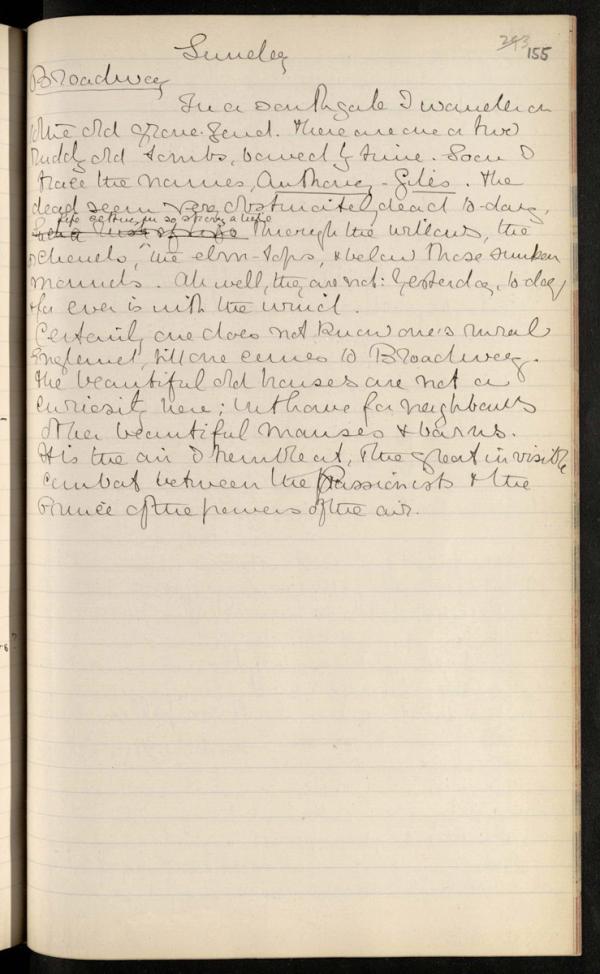 243 155
Sunday
Broadway
In a south gale I wander in
to the old grave-land. There are one or two
ruddy old tombs, bowed by time. Soon I
trace the names, Anthony - Giles. The
dead seem very obstinately dead to-day,
life getting in so strong a
through the willows, the
orchards, the elm-tops, & below those sunken
mounds. Ah well, they are not: Yesterday, to-day
& for ever is with the wind.
Certainly one does not know one's rural
England, till one comes to Broadway.
The beautiful old houses are not a
curiosity here; but have for neighbours
other beautiful manses & barns.
It is the air I tremble at, the great invisible
combat between the Passionists & the
Prince of the powers of the air.